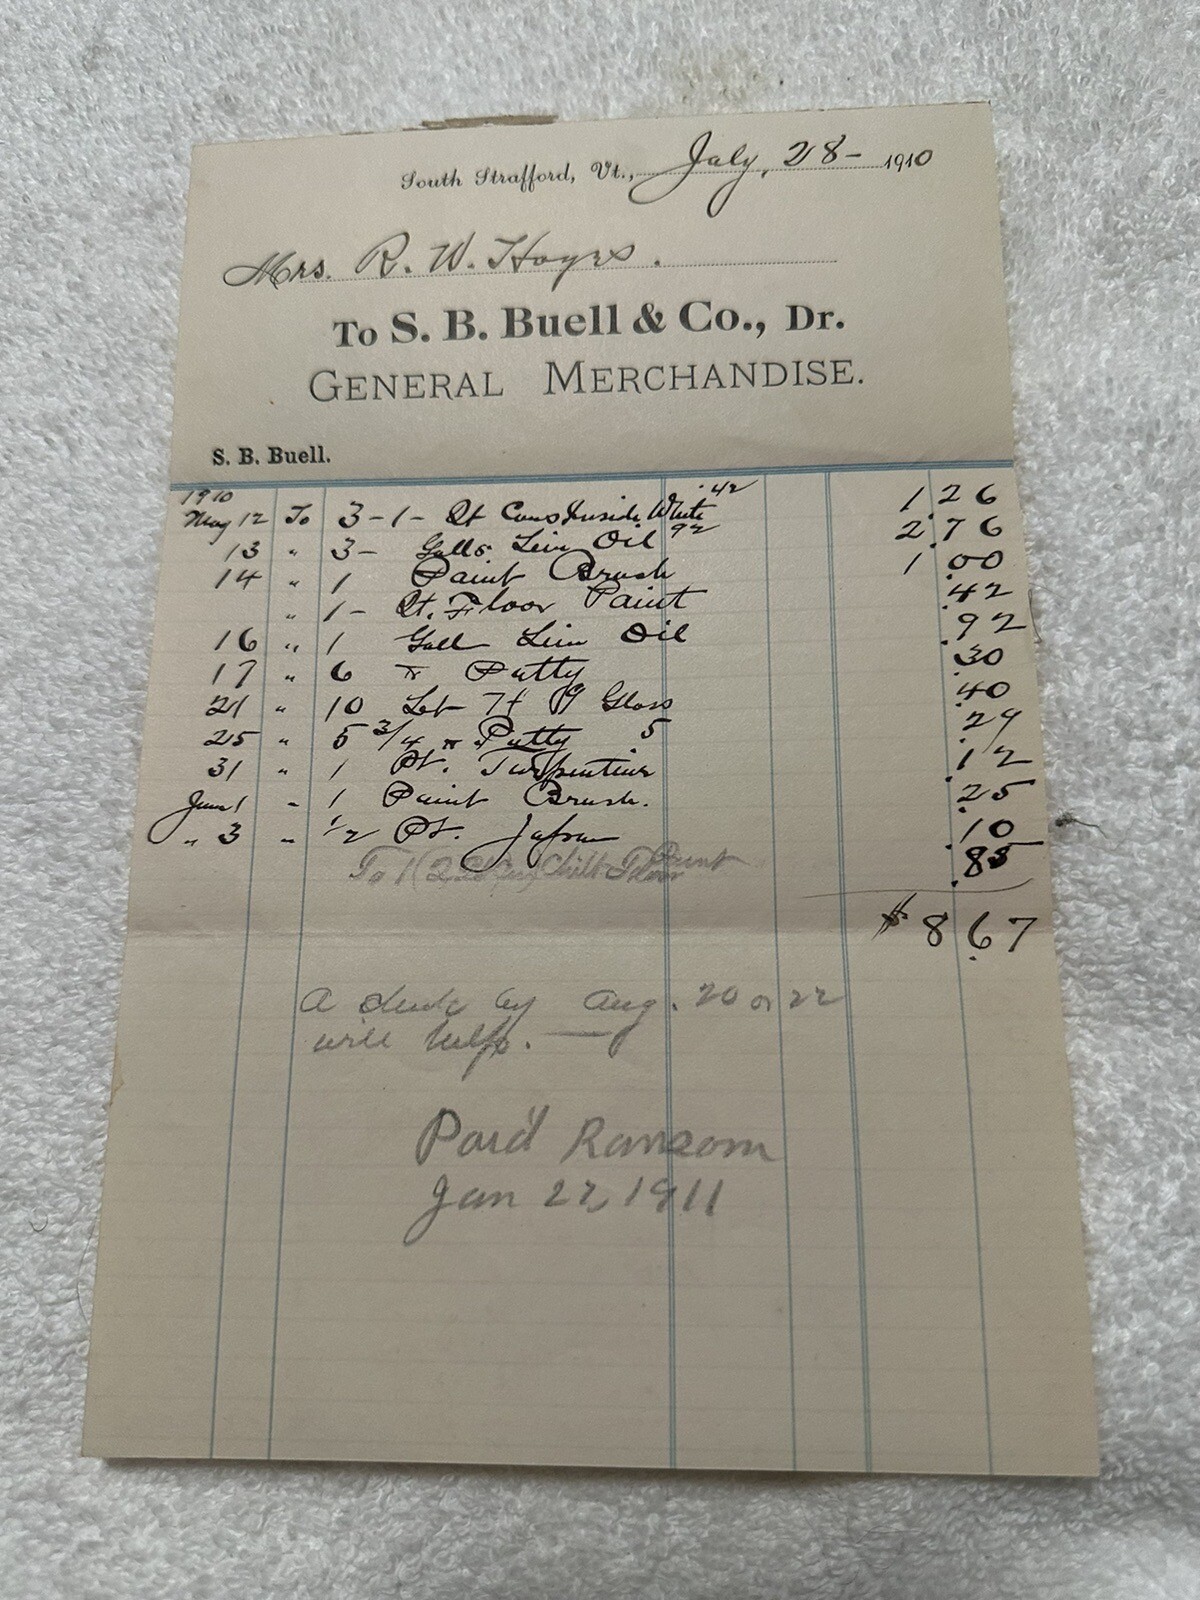 South Strafford, Vt., July, 28- 1910
Mrs. R. W. Hayes.
To S. B. Buell & Co., Dr.
GENERAL MERCHANDISE.
S. B. Buell.
1910
May 12 To 3-1- Qt Cons Inside White .42 1 26
13 " 3- Galls Lin Oil 92 2.76
14 " 1 Paint Brush 1 00
" 1- Qt. Floor Paint .42
16 " 1 Gall Lin Oil .92
17 " 6 # Putty .30
21 " 10 Let 7+9 Glass .40
25 " 5 3/4 # Putty 5 .29
31 " 1 Pt. Turpentine .12
June 1 " 1 Paint Brush. .25
" 3 " 1/2 Pt. Japan .10
To 1 Floor Paint .85
$8.67
A check by Aug. 20 or 22
will help.
Paid Ransom
Jan 27, 1911